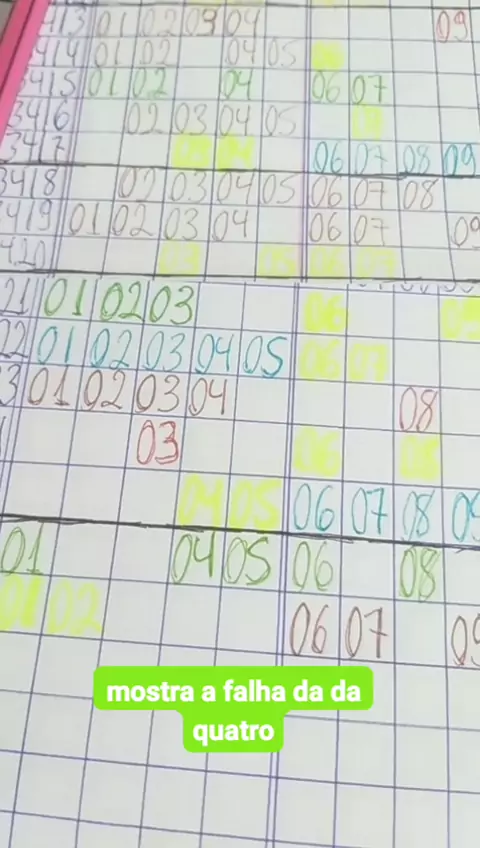 3413 01 02 03 04 09
3414 01 02 04 05 06
3415 01 02 04 06 07
3416 02 03 04 05 07
3417 03 04 06 07 08 09
3418 02 03 04 05 06 07 08
3419 01 02 03 04 06 07 09
3420 03 05 06 07
21 01 02 03 06 09
22 01 02 03 04 05 06 07
23 01 02 03 04 08
03 06 08
04 05 06 07 08 09
01 04 05 06 08
01 02 06 07 09
mostra a falha da da
quatro